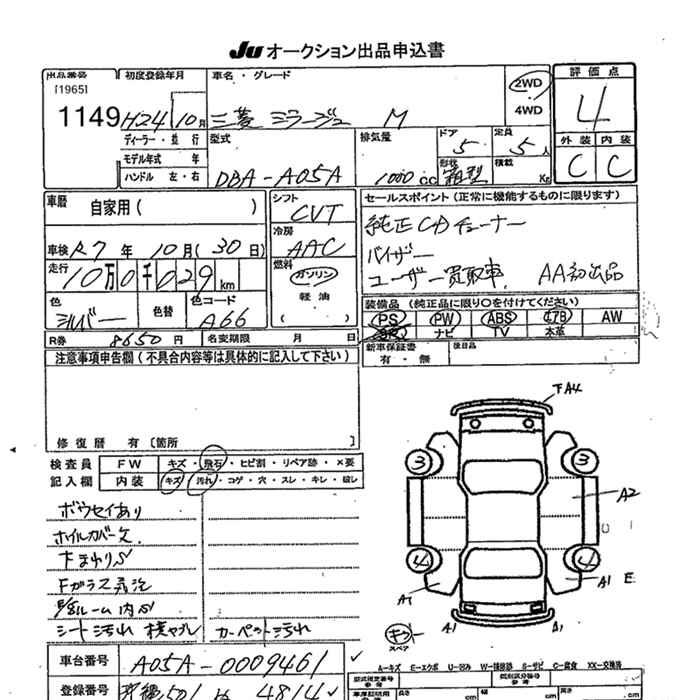 Ju オークション出品申込書
出品番号
[1965]
1149
初度登録年月
H24 10月
ディーラー・並行
モデル年式 年
ハンドル 左・右
車名・グレード
三菱 ミラージュ M
2WD
4WD
評価点
4
外装 内装
C C
型式
DBA-A05A
排気量
1000 cc
ドア
5
定員
5人
形状
箱型
積載
Kg
車歴
自家用( )
車検 R7 年 10月(30日)
走行
10万0千029km
色
シルバー
色替
色コード
A66
シフト
CVT
冷房
AAC
燃料
ガソリン
軽油
( )
セールスポイント(正常に機能するものに限ります)
純正CDチューナー
バイザー
ユーザー買取車 AA初出品
装備品(純正品に限り○を付けてください)
PS PW ABS AW
ナビ TV 本革
新車保証書
有・無
後日品
R券 8650円
名変期限 月 日
注意事項申告欄(不具合内容等は具体的に記入して下さい)
修復歴 有〔箇所 〕
検査員
記入欄
FW キズ・飛石・ヒビ割・リペア跡・×要
内装 キズ・汚れ・コゲ・穴・スレ・キレ・
ボウセイあり
ホイルカバー欠
下まわりS
Fガラス
ルーム内S
シート汚れ
カーペット汚れ
車台番号 A05A-0009461
登録番号 501 4814
下A4
3 3
A2
4 4
A1 E
A1 A1
キズ
スペア
A-キズ E-エクボ U-凹み W-補修跡 S-サビ C-腐食 XX-交換済